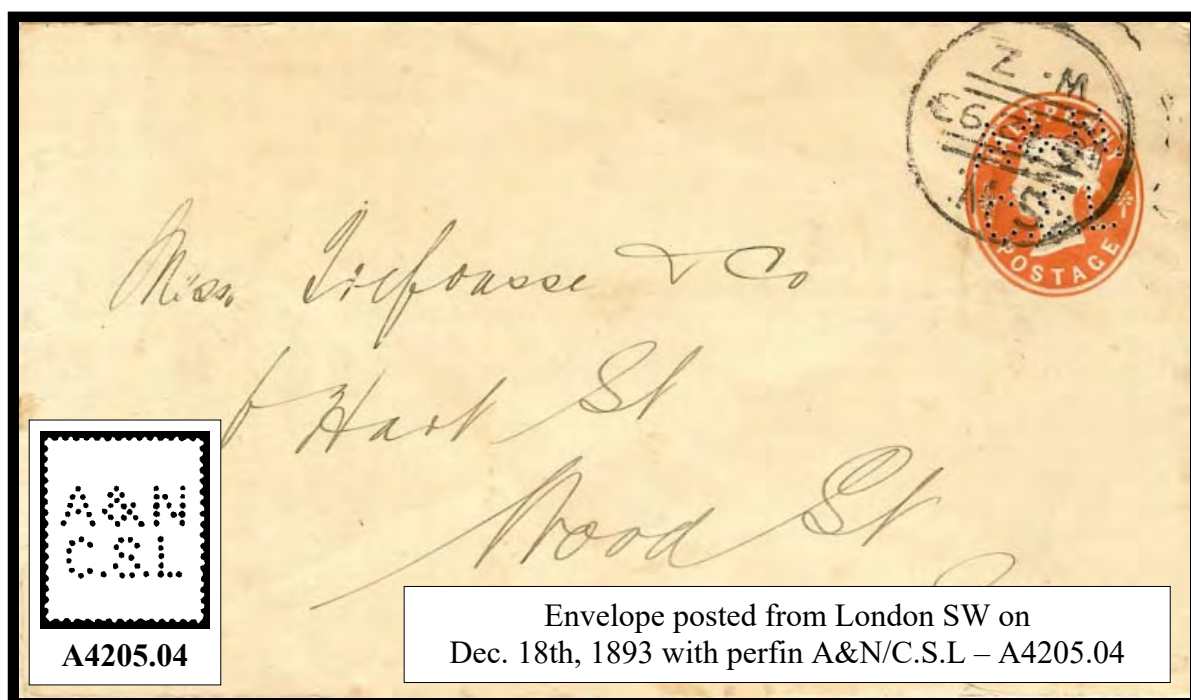 HALFPENNY
POSTAGE
93
& Co
6 Hart St
Wood St
A&N
C.&.L
A4205.04
Envelope posted from London SW on
Dec. 18th, 1893 with perfin A&N/C.S.L – A4205.04